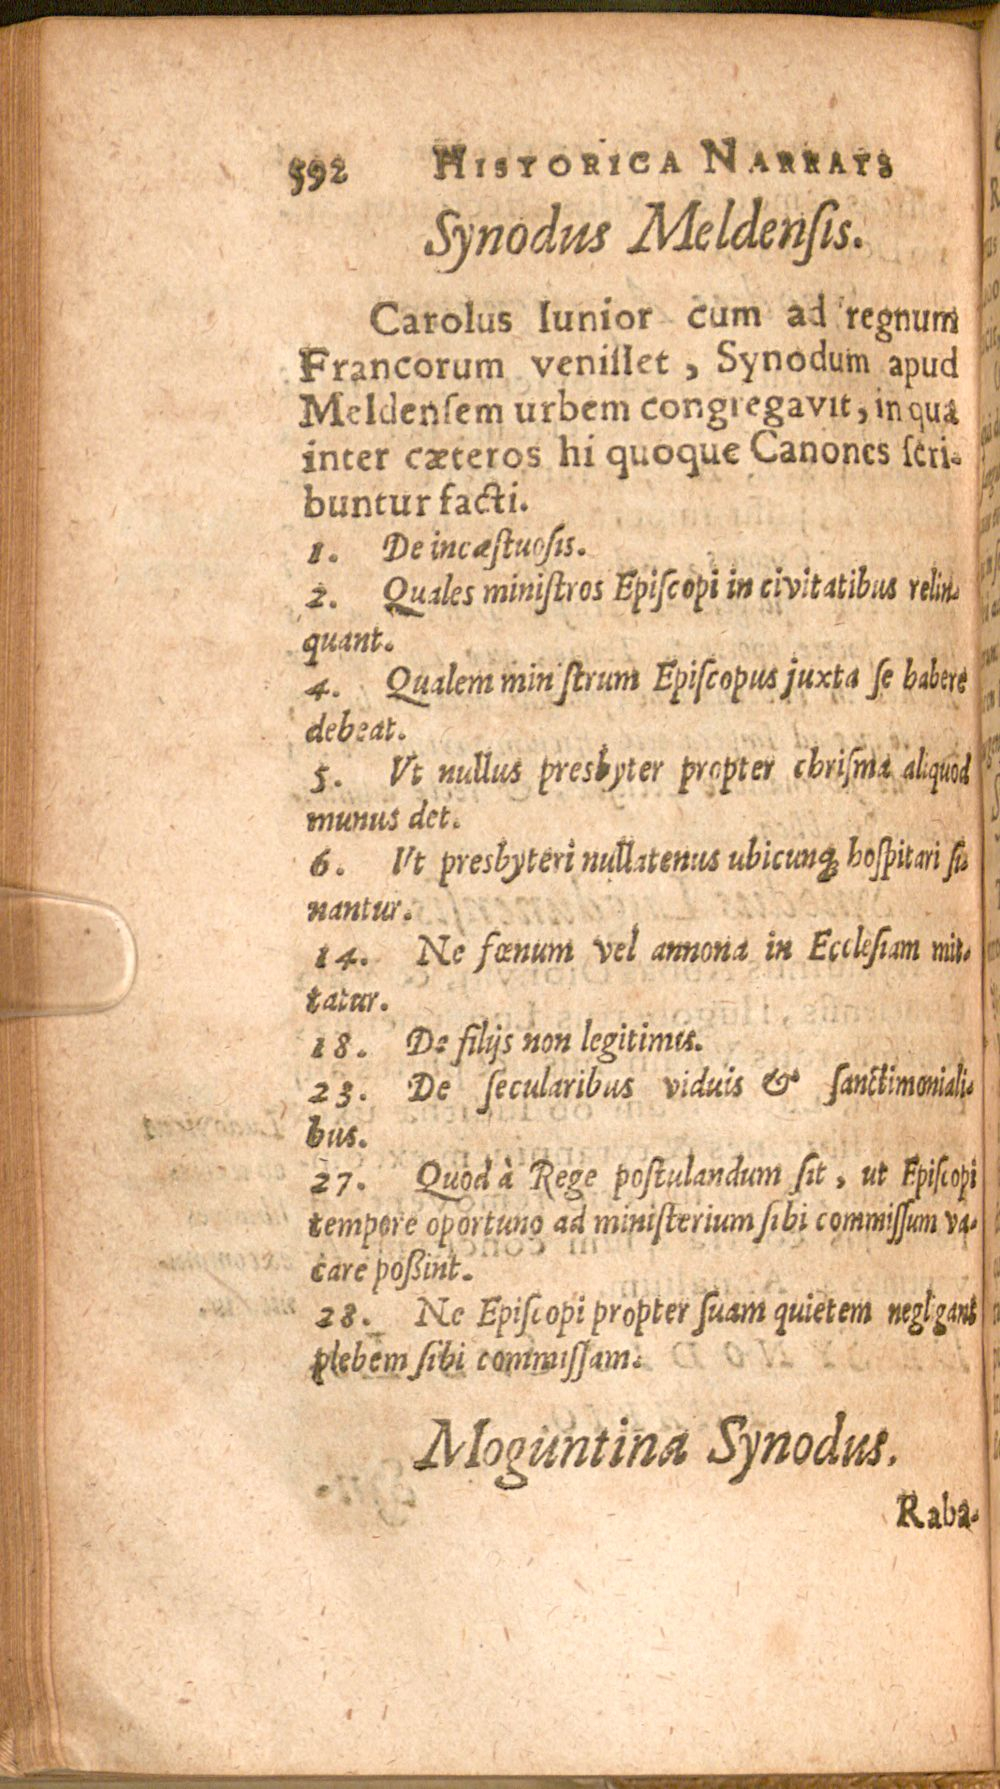 592 HISTORICA NARRATS
Synodus Meldenſis.
Carolus Iunior cum ad regnum
Francorum veniſſet, Synodum apud
Meldenſem urbem congregavit, in qua
inter cæteros hi quoque Canones ſcri-
buntur facti.
1. De incæſtuoſis.
2. Quales miniſtros Epiſcopi in civitatibus relin-
quant.
4. Qualem miniſtrum Epiſcopus juxta ſe habere
debeat.
5. Ut nullus presbyter propter chriſma aliquod
munus det.
6. Ut presbyteri nullatenus ubicunq; hoſpitari ſi-
nantur.
14. Ne fœnum vel annona in Eccleſiam mit-
tatur.
18. De filijs non legitimis.
23. De ſecularibus viduis & ſanctimoniali-
bus.
27. Quod à Rege poſtulandum ſit, ut Epiſcopi
tempore oportuno ad miniſterium ſibi commiſſum va-
care poßint.
28. Ne Epiſcopi propter ſuam quietem negligant
plebem ſibi commiſſam.
Moguntina Synodus.
Raba-